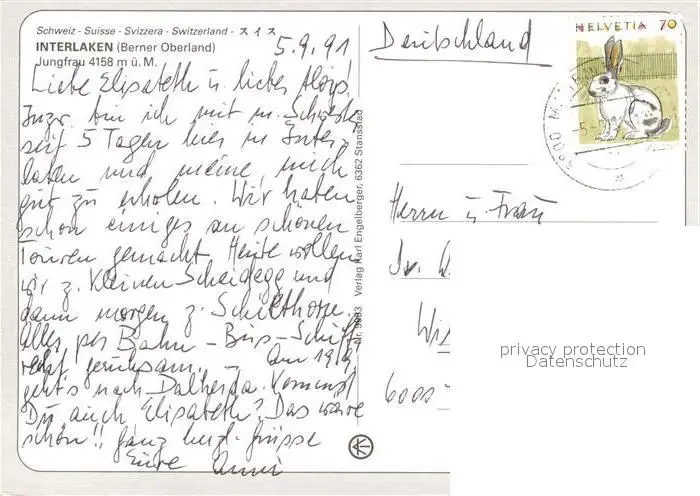 Schweiz - Suisse - Svizzera - Switzerland - スイス
INTERLAKEN (Berner Oberland)
Jungfrau 4158 m ü. M.
5.9.91
Liebe Elisabeth u. lieber Alois!
Inzw. bin ich mit m. Schwester
seit 5 Tagen hier in Inter-
laken und meine, mich
gut zu erholen. Wir haben
schon einiges an schönen
Touren gemacht. Heute wollen
wir z. Kleinen Scheidegg und
dann morgen z. Schilthorn.
Alles per Bahn - Bus - Schiff
recht geruhsam. - Am 19.9.
geht's nach Dalherda. Kommst
Du auch Elisabeth? Das wäre
schön!! Ganz herzl. Grüsse
Eure Anni
Nr. 9983 Verlag Karl Engelberger, 6362 Stansstad
Deutschland
HELVETIA 70
Herrn u. Frau
Dr.
6000
privacy protection
Datenschutz